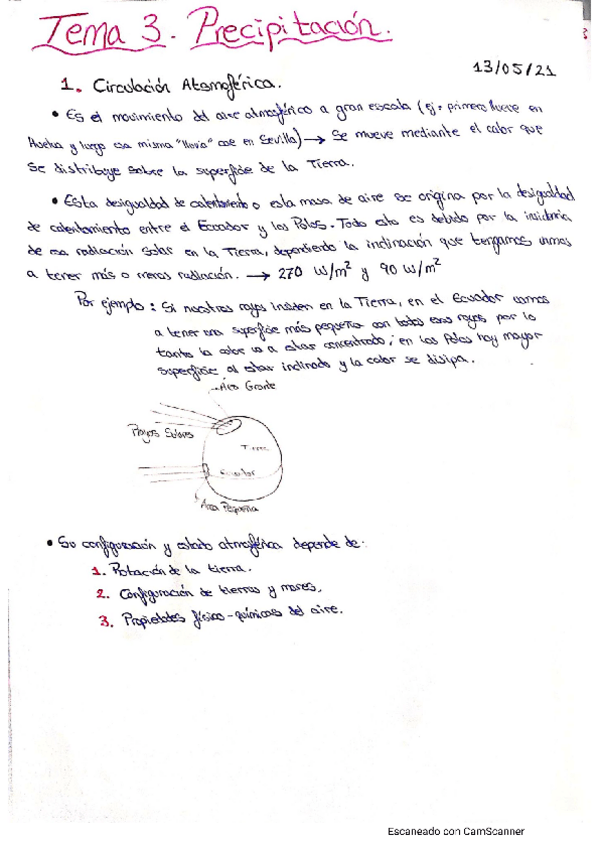 Tema 3. Precipitación.
13/05/21
1. Circulación Atomoférica.
• Es el movimiento del aire atmosférico a gran escala (ej: primero llueve en
Huelva y luego esa misma "lluvia" cae en Sevilla) → Se mueve mediante el calor que
se distribuye sobre la superficie de la Tierra.
• Esta desigualdad de calentamiento o esta masa de aire se origina por la desigualdad
de calentamiento entre el Ecuador y los Polos. Todo esto es debido por la incidencia
de esa radiación solar en la Tierra, dependiendo la inclinación que tengamos vamos
a tener más o menos radiación. → 270 W/m² y 90 W/m²
Por ejemplo: Si nuestros rayos inciden en la Tierra, en el Ecuador vamos
a tener una superficie más pequeña con todos esos rayos por lo
tanto la calor va a estar concentrado; en los Polos hay mayor
superficie al estar inclinado y la calor se disipa.
Área Grande
Rayos Solares
Tierra
Ecuador
Área Pequeña
• Su configuración y estado atmosférica depende de:
1. Rotación de la tierra.
2. Configuración de tierras y mares.
3. Propiedades físico-químicas del aire.
Escaneado con CamScanner